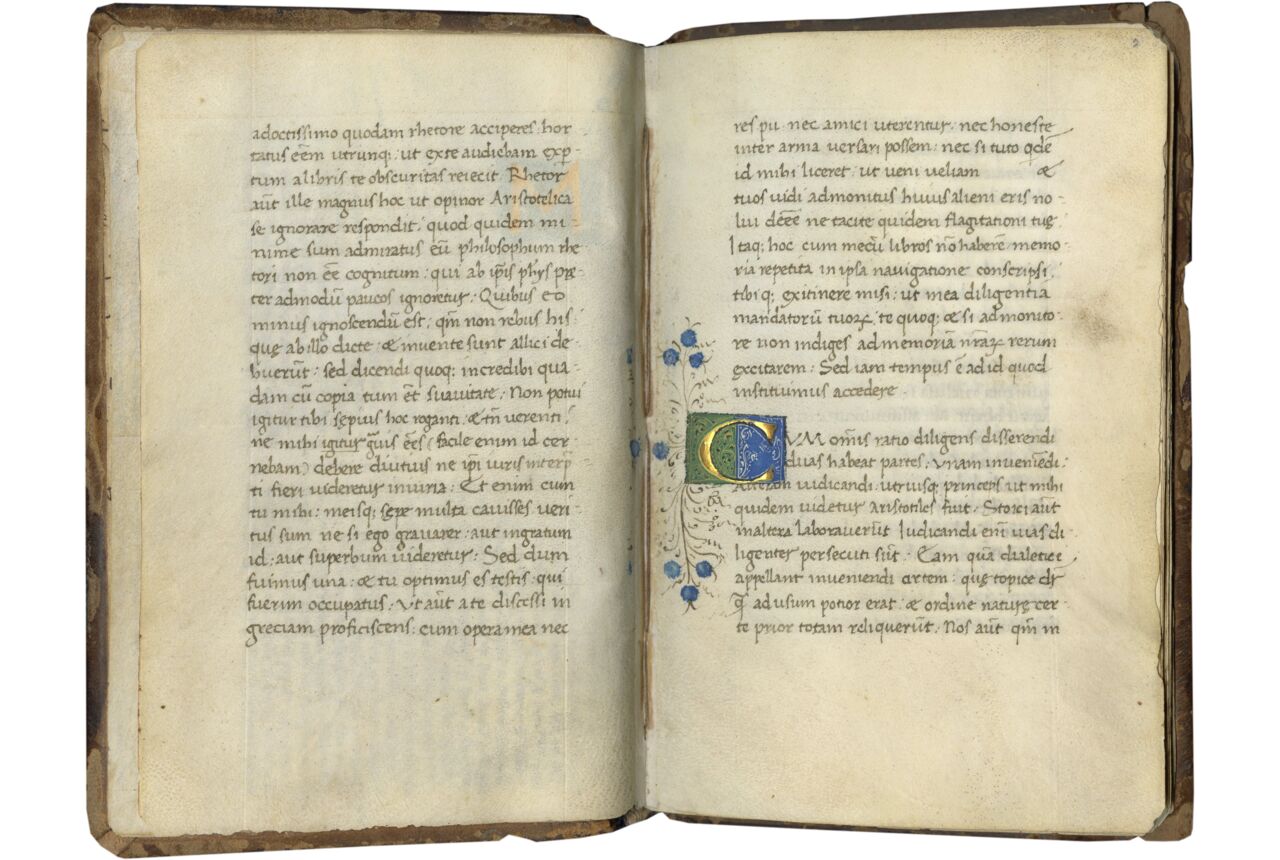 adoctissimo quodam rhetore acciperes hor
tatus eēm utrunq; ut exte audiebam exp
tum alibris te obscuritas reiecit. Rhetor
aūt ille magnus hoc ut opinor Aristotelica
se ignorare respondit: quod quidem mi
nime sum admiratus eū philosophum rhe
tori non eē cognitum: qui ab ip̄is phȳs pre
ter admodū paucos ignoretur. Quibus eo
minus ignoscendū est: qm̄ non rebus his
quę ab illo dicte & invente sunt allici de
buerūt: sed dicendi quoq; incredibi qua
dam cū copia tum ēt suavitate. Non potui
igitur tibi sepius hoc roganti & tn̄ verenti
ne mihi igitur gravis eēs (facile enim id cer
nebam) debere diutius ne ip̄i iuris interp̄
ti fieri videretur iniuria. Et enim cum
tu mihi: meisq; sepe multa cavisses veri
tus sum ne si ego gravarer: aut ingratum
id: aut superbum videretur. Sed dum
fuimus una: & tu optimus es testis: qui
fuerim occupatus. Ut aūt a te discessi in
greciam proficiscens: cum opera mea nec
res pu. nec amici uterentur: nec honeste
inter arma versari possem: nec si tuto qdē
id mihi liceret: ut veni veliam &
tuos vidi admonitus huius alieni eris no
lui deēē ne tacite quidem flagitationi tuę
Itaq; hoc cum mecū libros nō haberē memo
ria repetita in ipsa navigatione conscripsi:
tibi q; ex itinere misi: ut mea diligentia
mandatorū tuoꝝ te quoq; & si admonito
re non indiges ad memoriā nr̄aꝝ rerum
excitarem. Sed iam tempus ē ad id quod
instituimus accedere.
CUM omīs ratio diligens disserendi
duas habeat partes. Unam inveniēdi:
Alteram iudicandi: utriusq; princeps ut mihi
quidem videtur Aristotiles fuit. Storci aūt
inaltera laboraverūt Iudicandi enī vias di
ligenter persecuti sūt. Eam quā dialetice
appellant inveniendi artem: quę topice dr̄
q̄ ad usum potior erat: & ordine naturę cer
te prior totam reliquerūt. Nos aūt qm̄ in